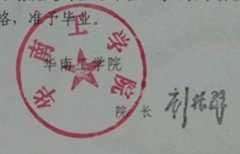 格，准予毕业。
华南工学院
华南工学院
院 长